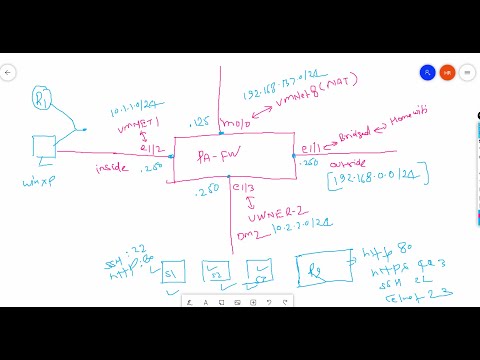 HR
R1
10.1.1.0/24
VMNET1
e1/2
inside
.250
winxp
192.168.137.0/24
VMNet8 (NAT)
.125
m0/0
PA-FW
e1/1
Bridged
Homewifi
.250
outside
[192.168.0.0/24]
.250
e1/3
DMZ
10.2.2.0/24
SSH:22
HTTP:80
S1
R2
http 80
SSH
Telnet 23